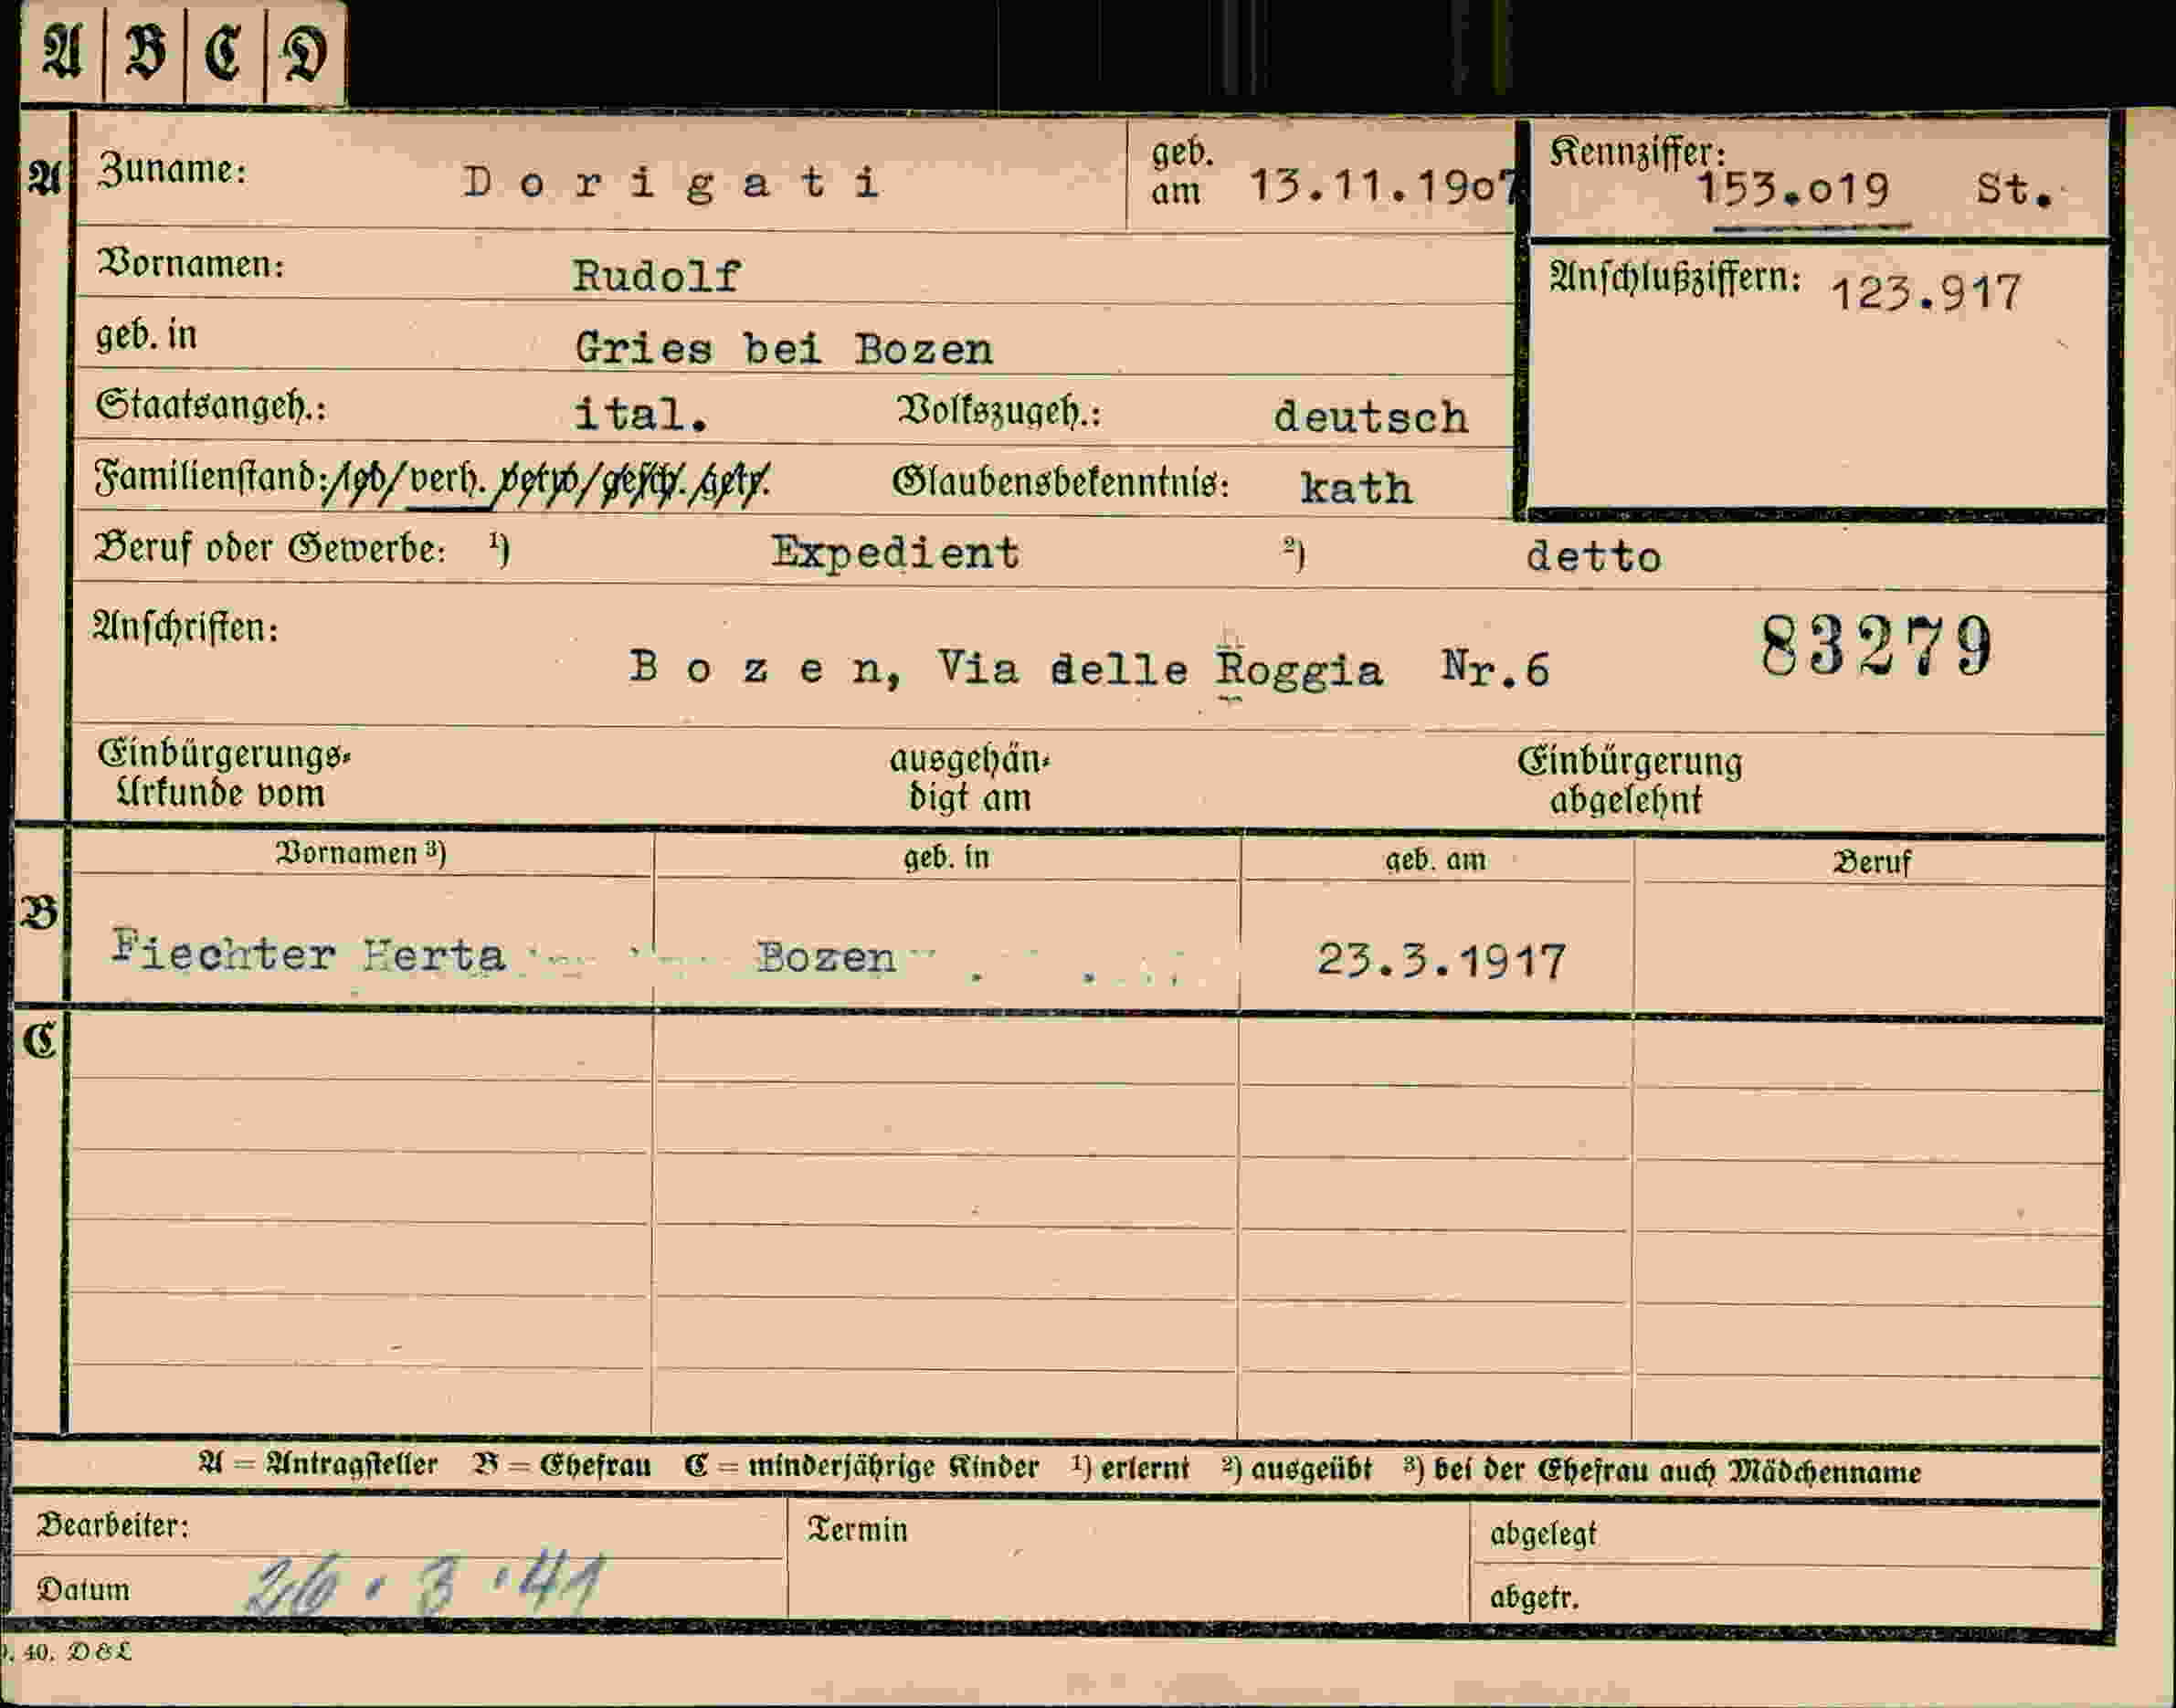 A B C D
A Zuname: Dorigati geb. am 13.11.1907 Kennziffer: 153.019 St.
Vornamen: Rudolf Anschlußziffern: 123.917
geb. in Gries bei Bozen
Staatsangeh.: ital. Volkszugeh.: deutsch
Familienstand: led/verh. verw/gesch./getr. Glaubensbekenntnis: kath
Beruf oder Gewerbe: ¹) Expedient ²) detto
Anschriften: 83279
Bozen, Via delle Roggia Nr.6
Einbürgerungs- ausgehän- Einbürgerung
Urkunde vom digt am abgelehnt
Vornamen ³) geb. in geb. am Beruf
B Fiechter Herta Bozen 23.3.1917
C
A = Antragsteller B = Ehefrau C = minderjährige Kinder ¹) erlernt ²) ausgeübt ³) bei der Ehefrau auch Mädchenname
Bearbeiter: Termin abgelegt
Datum 26.3.41 abgetr.
40. D&L